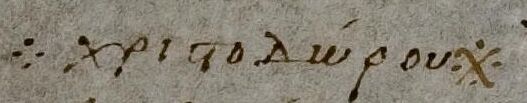 ⁘ χριστοδώρου ※